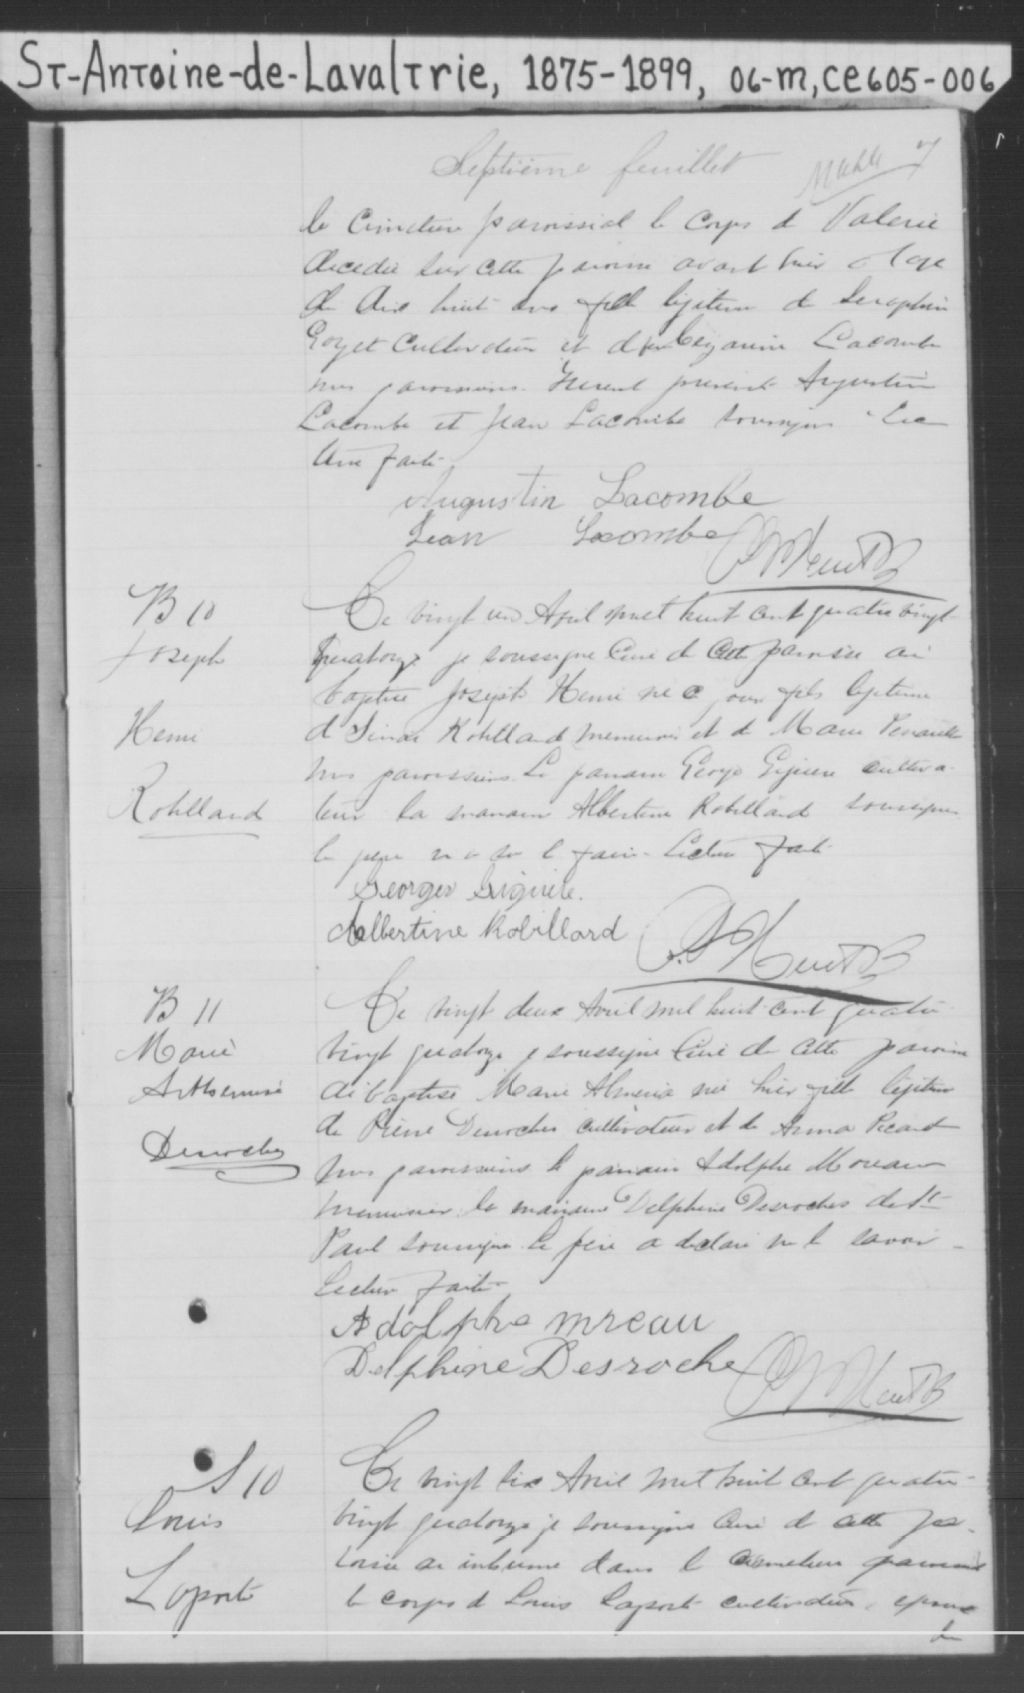 St-Antoine-de-Lavaltrie, 1875-1899, 06-m, ce605-006
Septième feuillet 7
le Cimetiere paroissial le Corps d Valerie
decedée sur cette paroisse avant hier a l'age
de dix huit ans fille legitime de Seraphin
cultivateur et d Lacombe
nos paroissiens. Furent present Augustin
Lacombe et Jean Lacombe soussignes Lec
ture faite
Augustin Lacombe
Jean Lacombe
B 10
Joseph
Henri
Robillard
Ce vingt un Avril mil huit cent quatre vingt
quatorze je soussigne Curé de Cette paroisse ai
baptise Joseph Henri né c jour fils legitime
d Robillard menuisier et d Marie
nos paroissiens. Le parrain George cultiva-
teur la marraine Albertine Robillard soussignes
le pere n a su l faire. Lecture faite
Georges
Albertine Robillard
B 11
Marie
Desroches
Ce vingt deux Avril mil huit cent quatre
vingt quatorze je soussigne Curé de Cette paroisse
ai baptise Marie née hier fille legitime
de Pierre Desroches cultivateur et de Anna Picard
nos paroissiens le parrain Adolphe Moreau
menuisier la marraine Delphine Desroches de St
Paul soussignes le père a déclaré ne l savoir
Lecture faite
Adolphe mreau
Delphine Desroche
S 10
Louis
Laporte
Ce vingt six Avril mil huit cent quatre
vingt quatorze je soussigne Curé d cette pa-
roisse ai inhume dans l cimetiere paroissial
le corps d Louis Laporte cultivateur, epoux
de